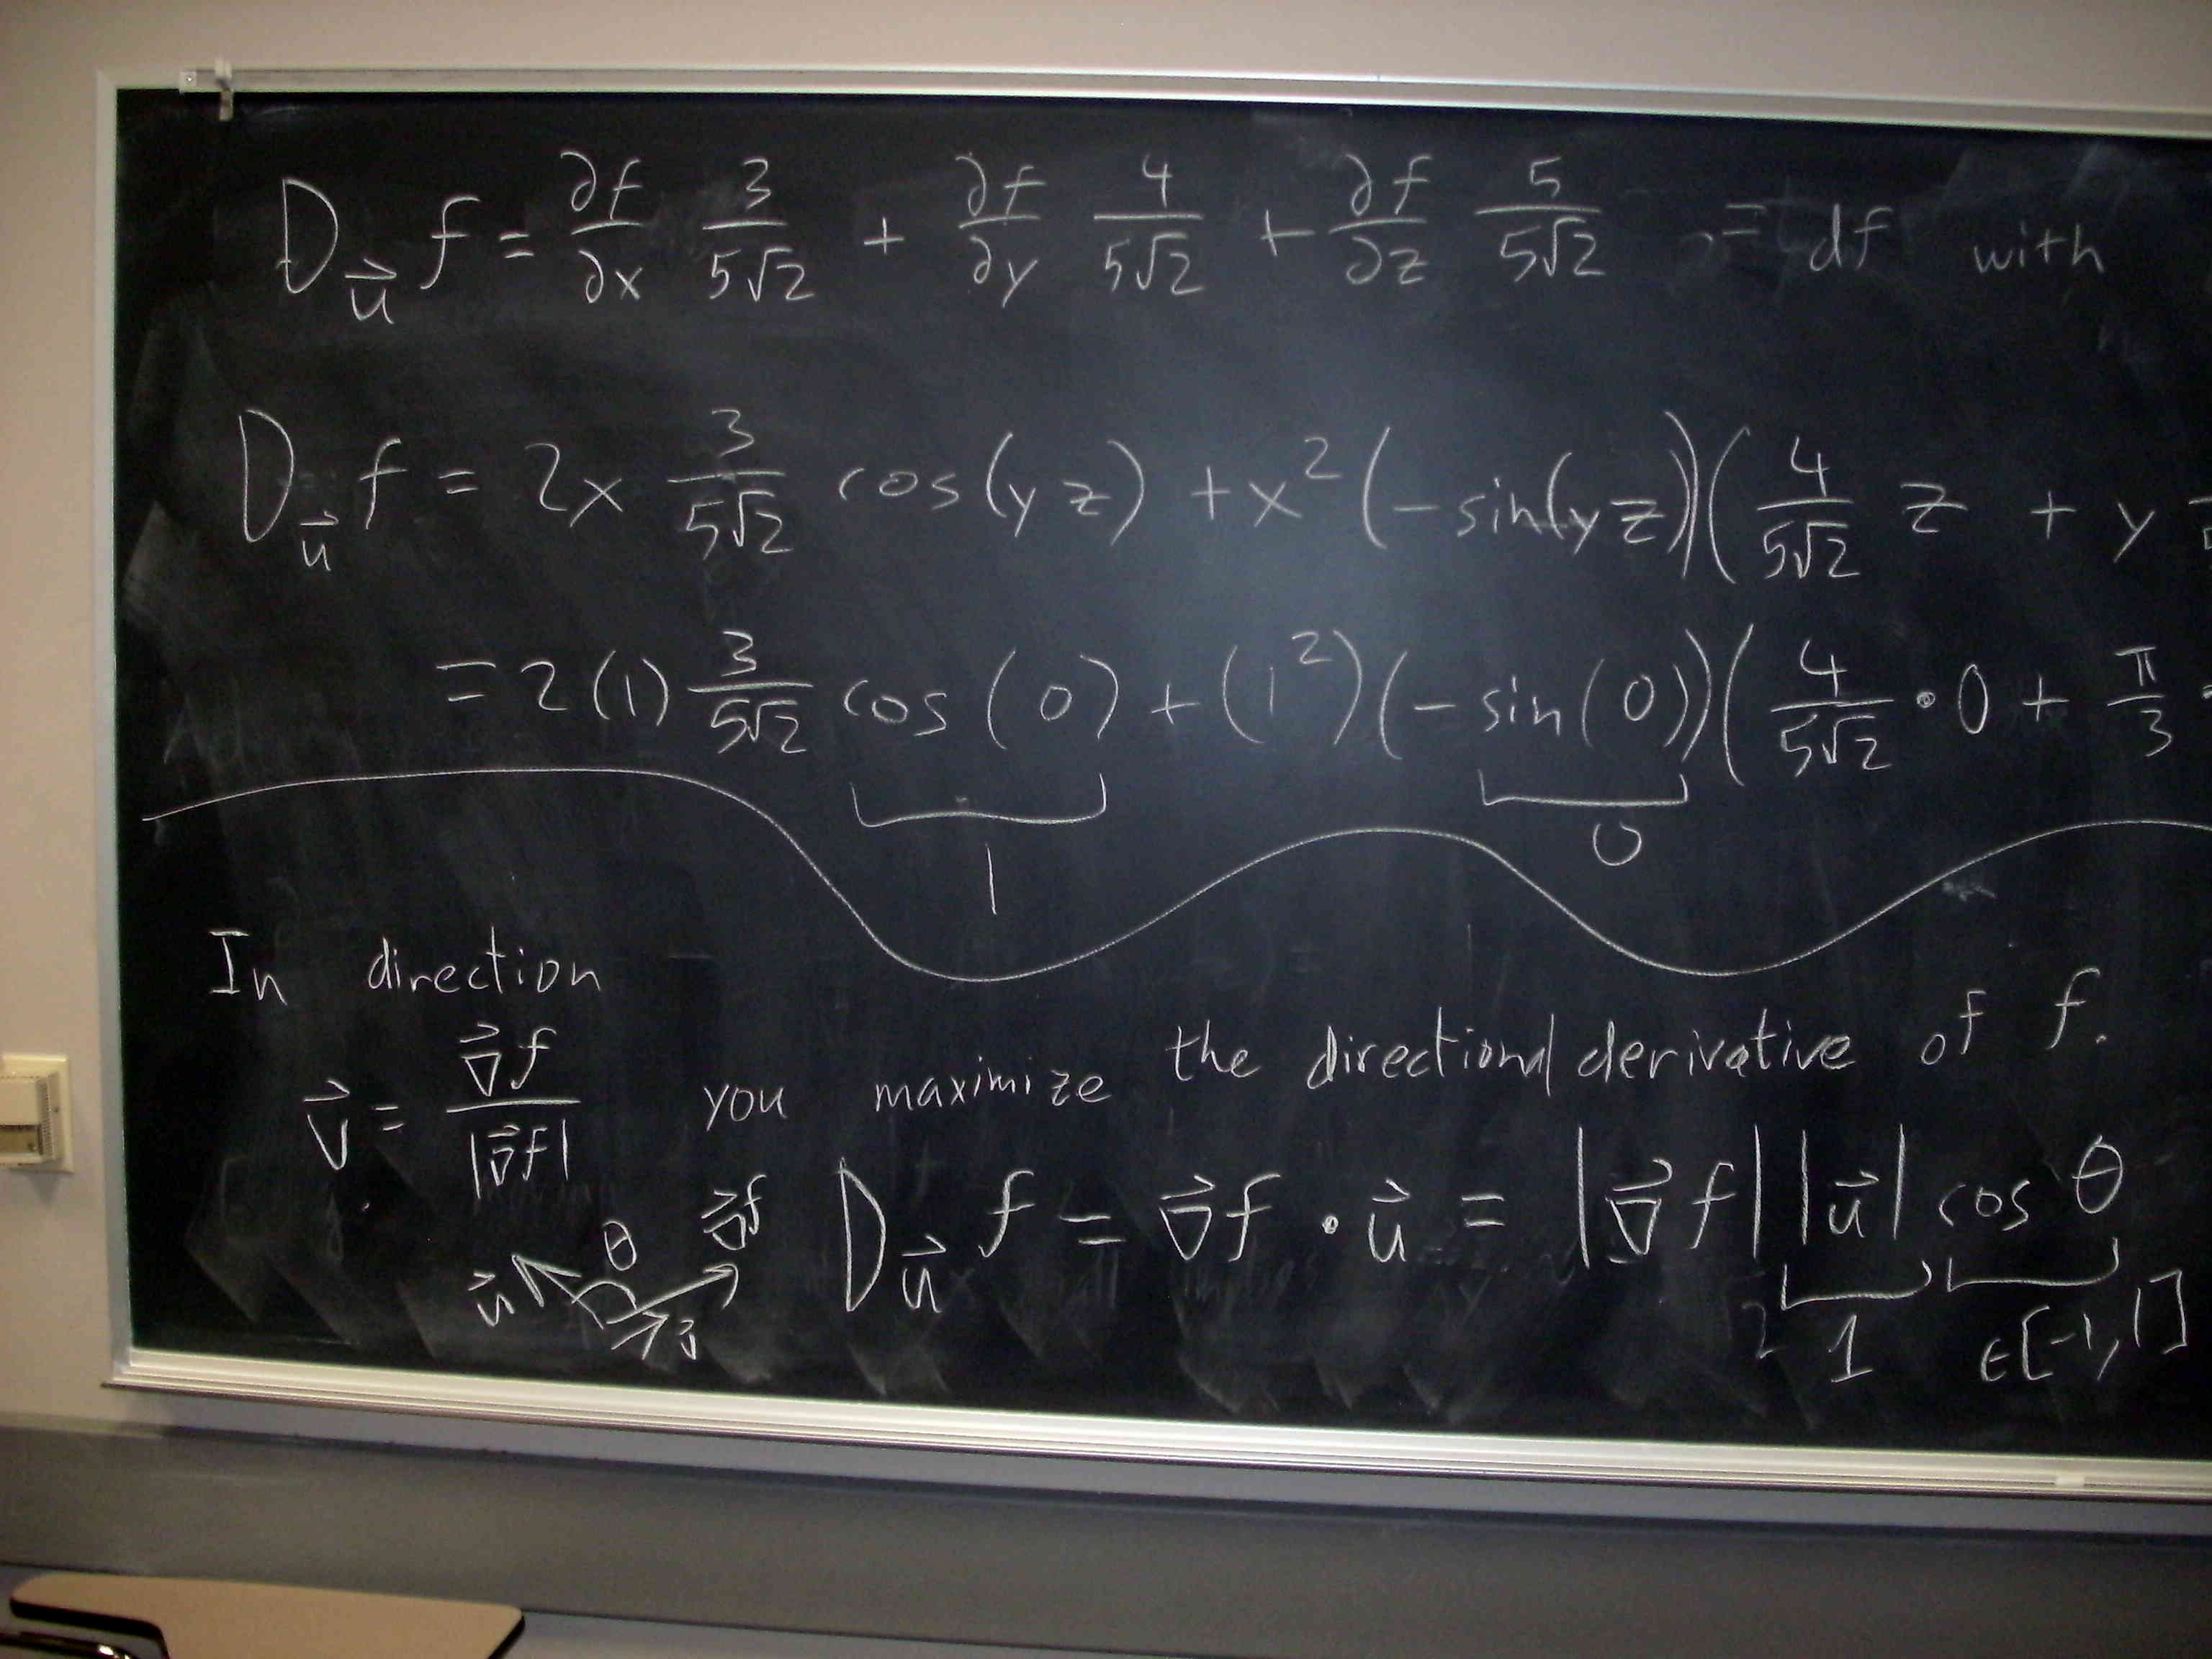 D_u⃗ f = ∂f/∂x 3/(5√2) + ∂f/∂y 4/(5√2) + ∂f/∂z 5/(5√2) = df with
D_u⃗ f = 2x 3/(5√2) cos(yz) + x² (-sin(yz))(4/(5√2) z + y
= 2(1) 3/(5√2) cos(0) + (1²)(-sin(0))(4/(5√2) • 0 + π/3
1 0
In direction
v⃗ = ∇⃗f/|∇⃗f| you maximize the directional derivative of f.
D_u⃗ f = ∇⃗f • u⃗ = |∇⃗f||u⃗| cos θ
1 ∈[-1,1]
u⃗ θ ∇⃗f v⃗